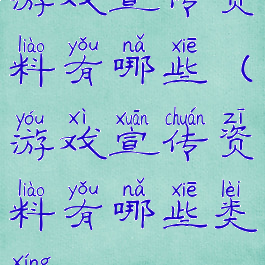 游戏宣传资
liào yǒu nǎ xiē
料有哪些（
yóu xì xuān chuán zī
游戏宣传资
liào yǒu nǎ xiē lèi
料有哪些类
xíng